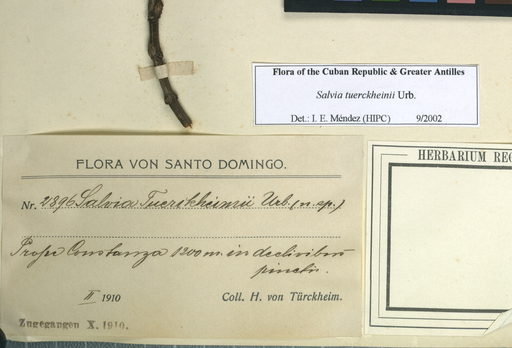 Flora of the Cuban Republic & Greater Antilles
Salvia tuerckheinii Urb.
Det.: I. E. Méndez (HIPC) 9/2002
FLORA VON SANTO DOMINGO.
Nr. 2896 Salvia Tuerckheimii Urb. (n. sp.)
Prope Constanza 1200 m. in declivibus
pinetis.
II 1910 Coll. H. von Türckheim.
Zugegangen X. 1910.
HERBARIUM REG